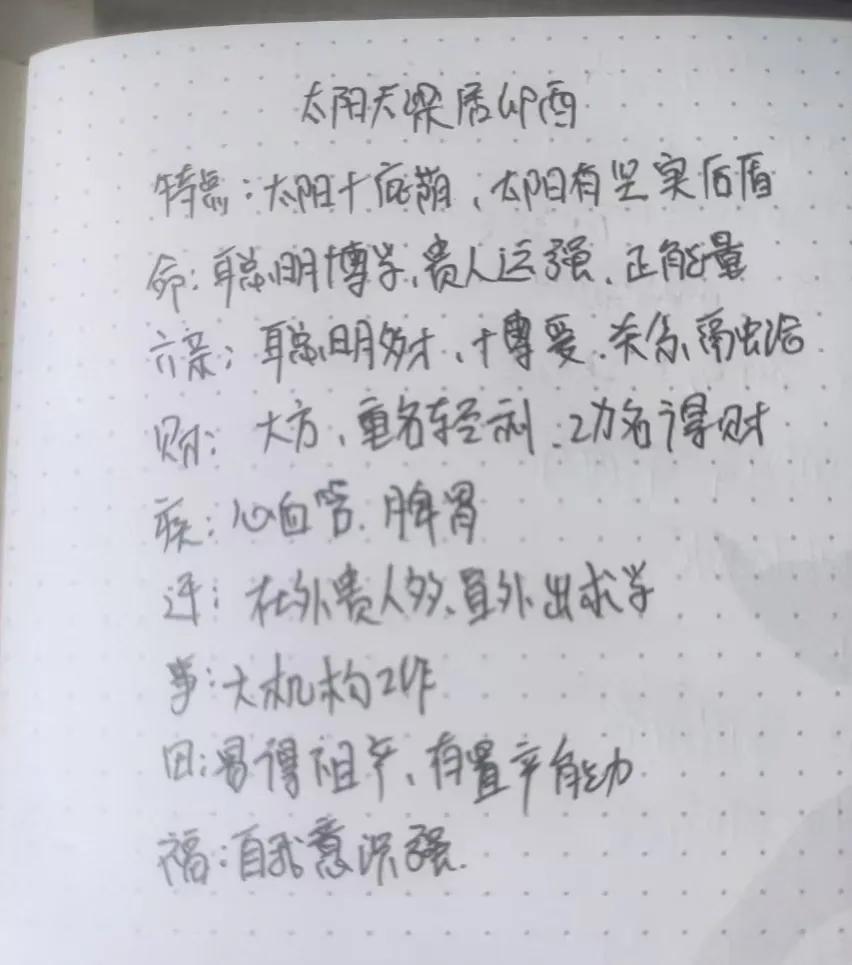 太阳天梁居卯酉
特点:太阳+庇荫、太阳有坚实后盾
命:聪明博学、贵人运强、正能量
六亲:聪明多才、+博爱.关系
财:大方、重名轻利.功名得财
疾:心血管.脾胃
迁:在外贵人多、宜外出求学
事:大机构工作
田:易得祖产、有置产能力
福:自我意识强.